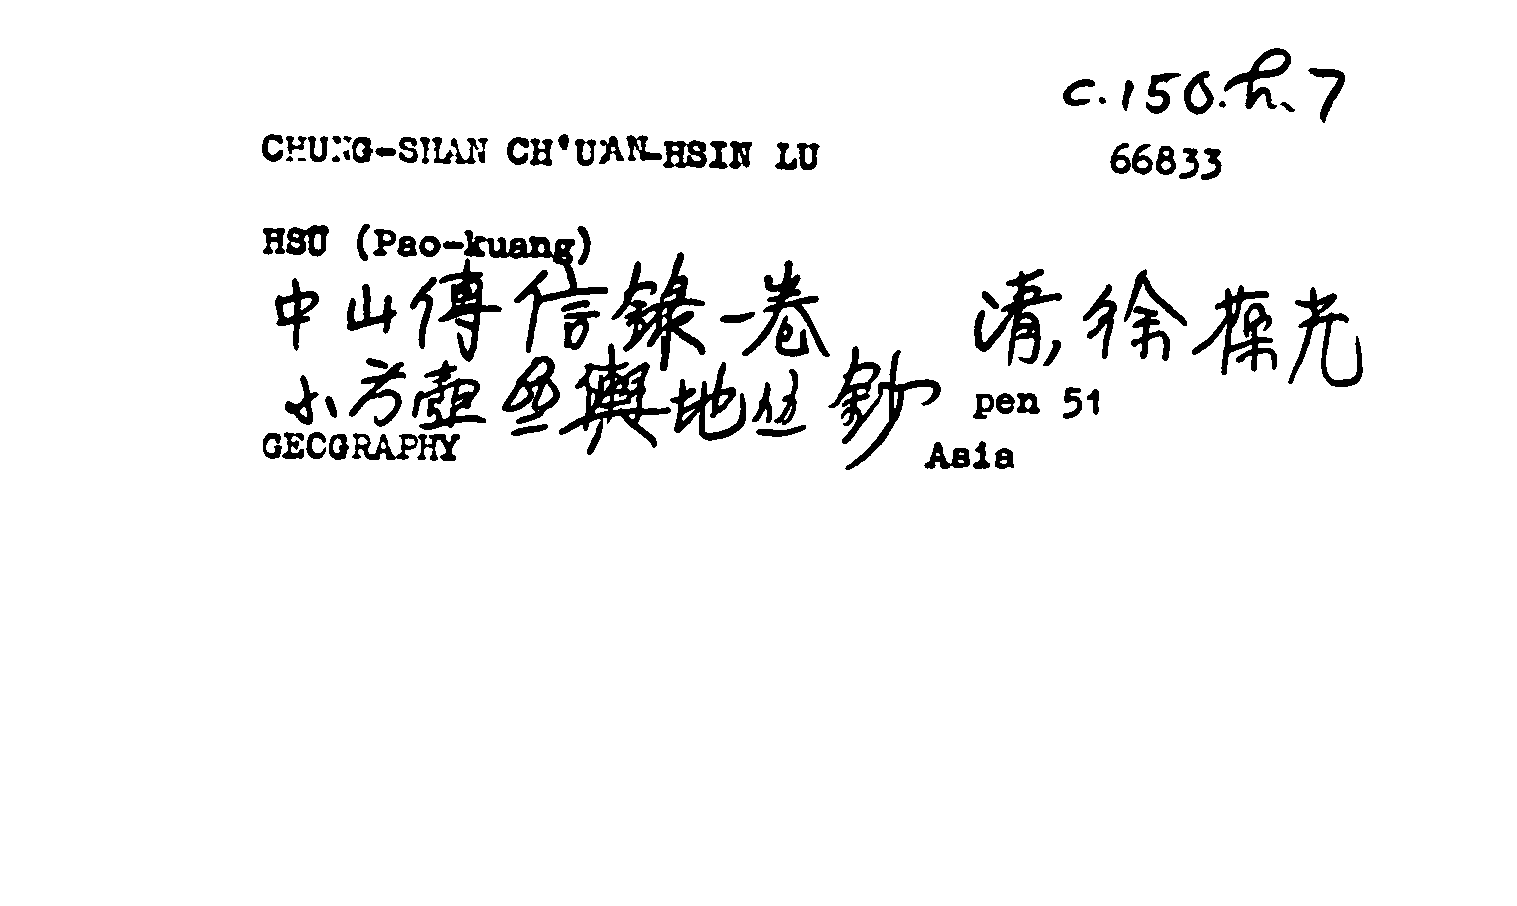 c.150.h.7
CHUNG-SHAN CH'UAN-HSIN LU 66833
HSÜ (Pao-kuang)
中山傳信錄一卷 清,徐葆光
小方壺齋輿地丛鈔 pen 51
GEOGRAPHY Asia